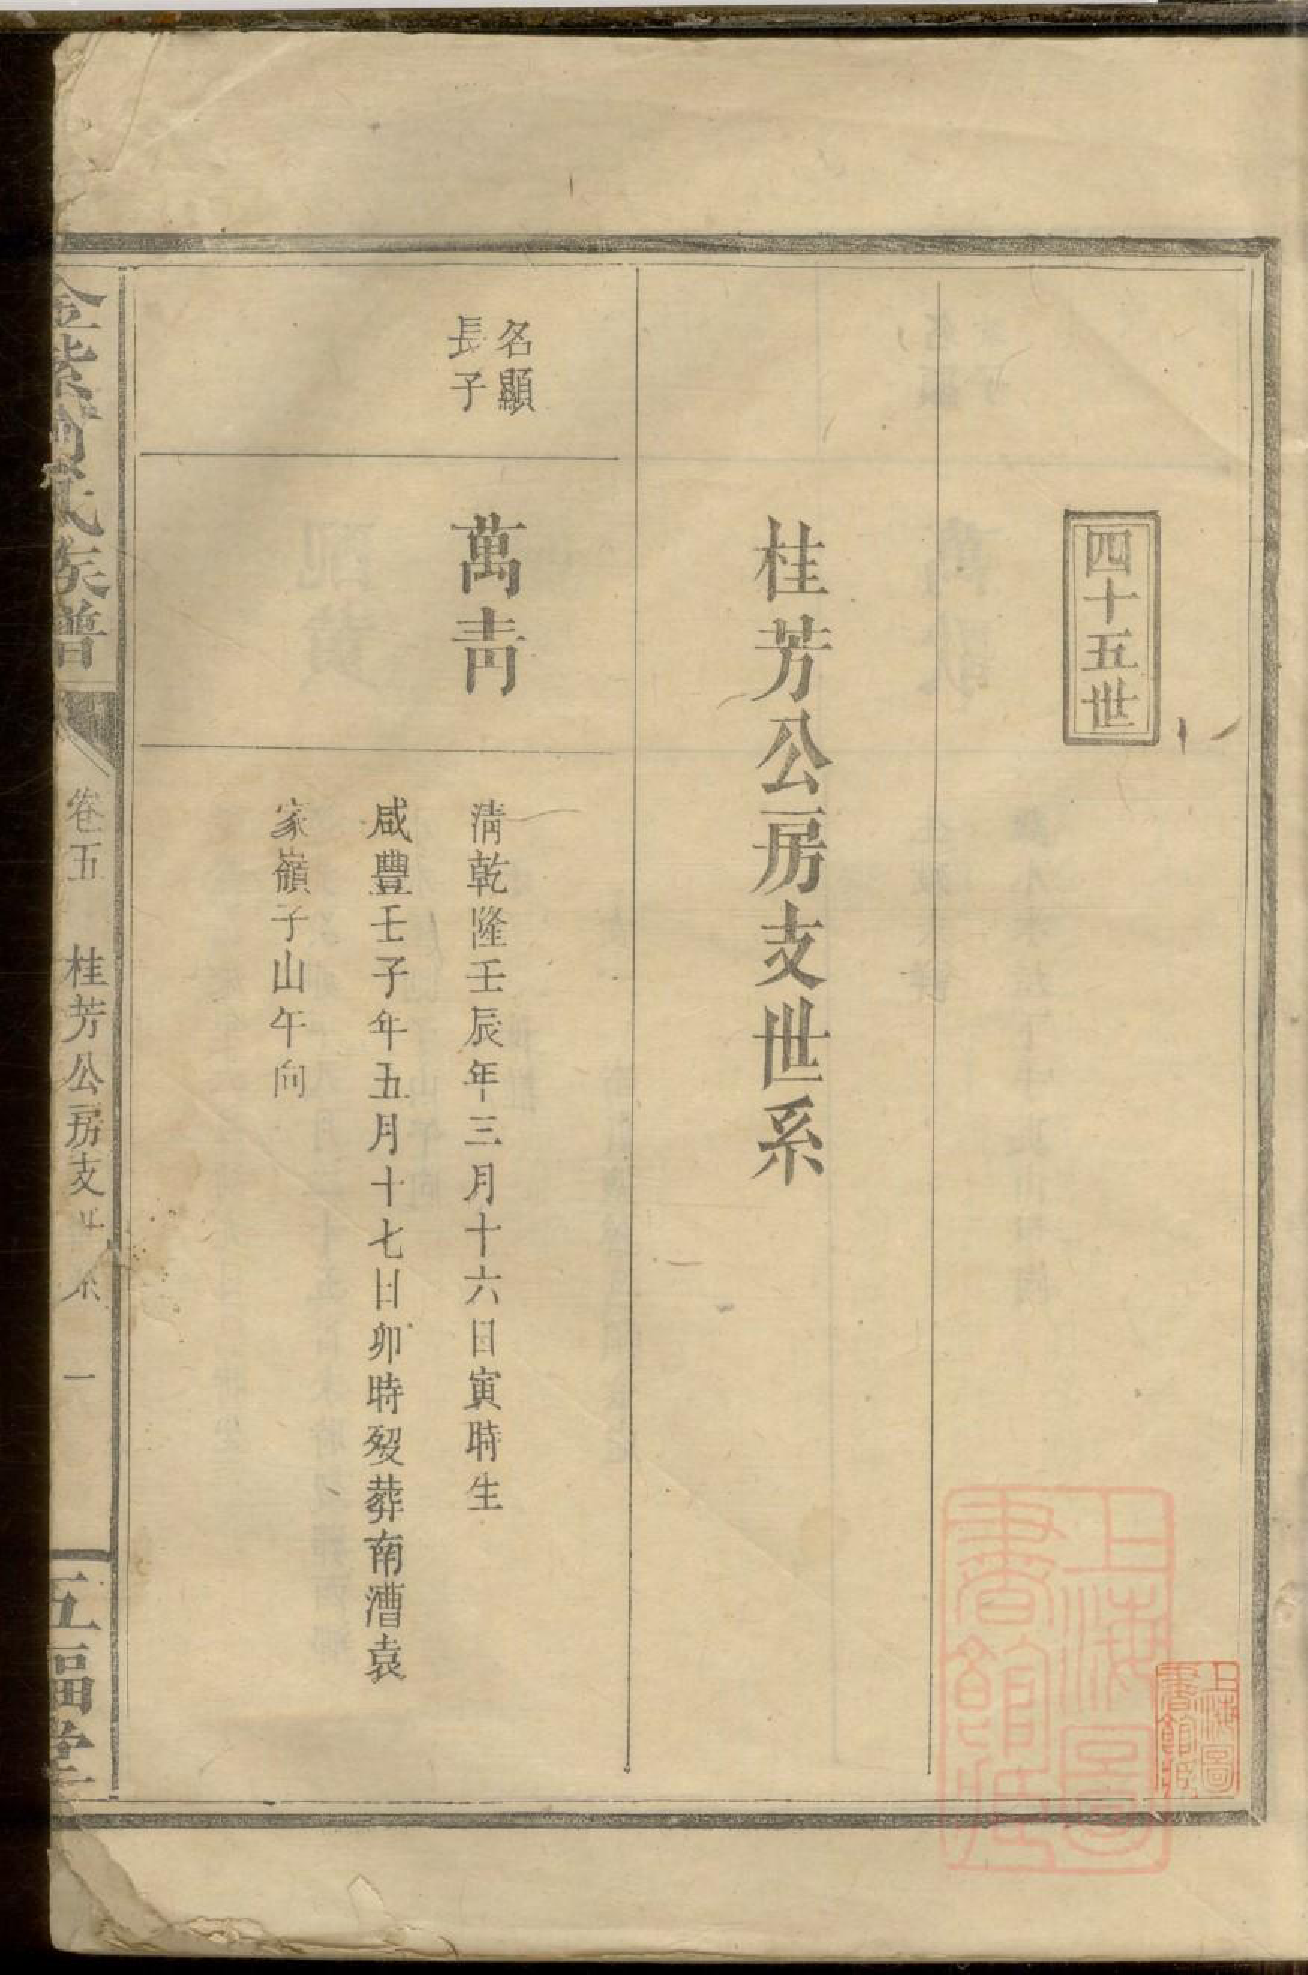 四十五世
桂芳公房支世系
名顯
長子
萬青
淸乾隆壬辰年三月十六日寅時生
咸豐壬子年五月十七日卯時歿葬南漕袁
家嶺子山午向
氏族譜
卷五 桂芳公房支世系 一
五福堂
上海圖
書館藏
上海圖
書館藏